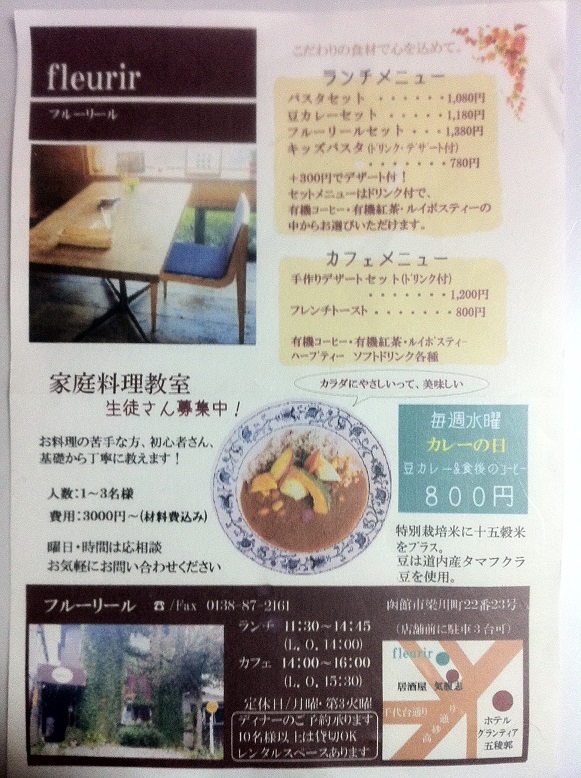 fleurir
フルーリール
こだわりの食材で心を込めて。
ランチメニュー
パスタセット ・・・・・・1,080円
豆カレーセット ・・・・・1,180円
フルーリールセット ・・・1,380円
キッズパスタ(ドリンク・デザート付)
・・・・・・・780円
+300円でデザート付!
セットメニューはドリンク付で、
有機コーヒー・有機紅茶・ルイボスティーの
中からお選びいただけます。
カフェメニュー
手作りデザートセット(ドリンク付)
・・・・・・・1,200円
フレンチトースト・・・・・・・800円
有機コーヒー・有機紅茶・ルイボスティー
ハーブティー ソフトドリンク各種
家庭料理教室
生徒さん募集中!
お料理の苦手な方、初心者さん、
基礎から丁寧に教えます!
人数:1~3名様
費用:3000円~(材料費込み)
曜日・時間は応相談
お気軽にお問い合わせください
カラダにやさしいって、美味しい
毎週水曜
カレーの日
豆カレー&食後のコーヒー
800円
特別栽培米に十五穀米
をプラス。
豆は道内産タマフクラ
豆を使用。
フルーリール ☎/Fax 0138-87-2161
ランチ 11:30~14:45
(L.O.14:00)
カフェ 14:00~16:00
(L.O.15:30)
定休日/月曜・第3火曜
ディナーのご予約承ります
10名様以上は貸切OK
レンタルスペースあります
函館市梁川町22番23号
(店舗前に駐車3台可)
fleurir
居酒屋
千代台通り
ホテル
グランティア
五稜郭